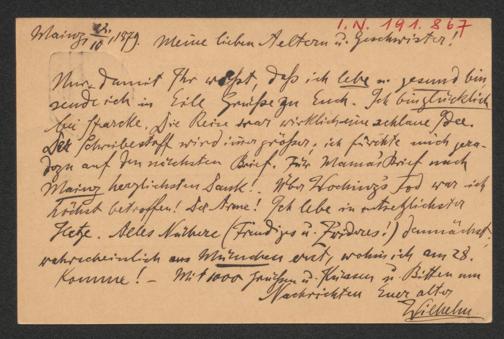 I.N. 191.867
Mainz 23./10 1879. Meine lieben Aeltern u. Geschwister!
Nur damit Ihr wißt daß ich lebe u. gesund bin
sende ich in Eile Grüße zu Euch. Ich bin glücklich
bei Starcke. Die Reise war wirklich eine schlaue Idee.
Der Schreibestoff wird immer größer; ich fürchte mich gera-
dezu auf den nächsten Brief. Für Mamas Brief nach
Mainz herzlichsten Dank! Über Tod war ich
höchst betroffen! Der Arme! Ich lebe in entsetzlichster
Hetze. Alles Nähere (Freudiges u. ) demnächst
wahrscheinlich aus München erst, wohin ich am 28.
komme! – Mit 1000 Grüßen u. Küssen u. Bitten um
Nachrichten Euer alter
Wilhelm